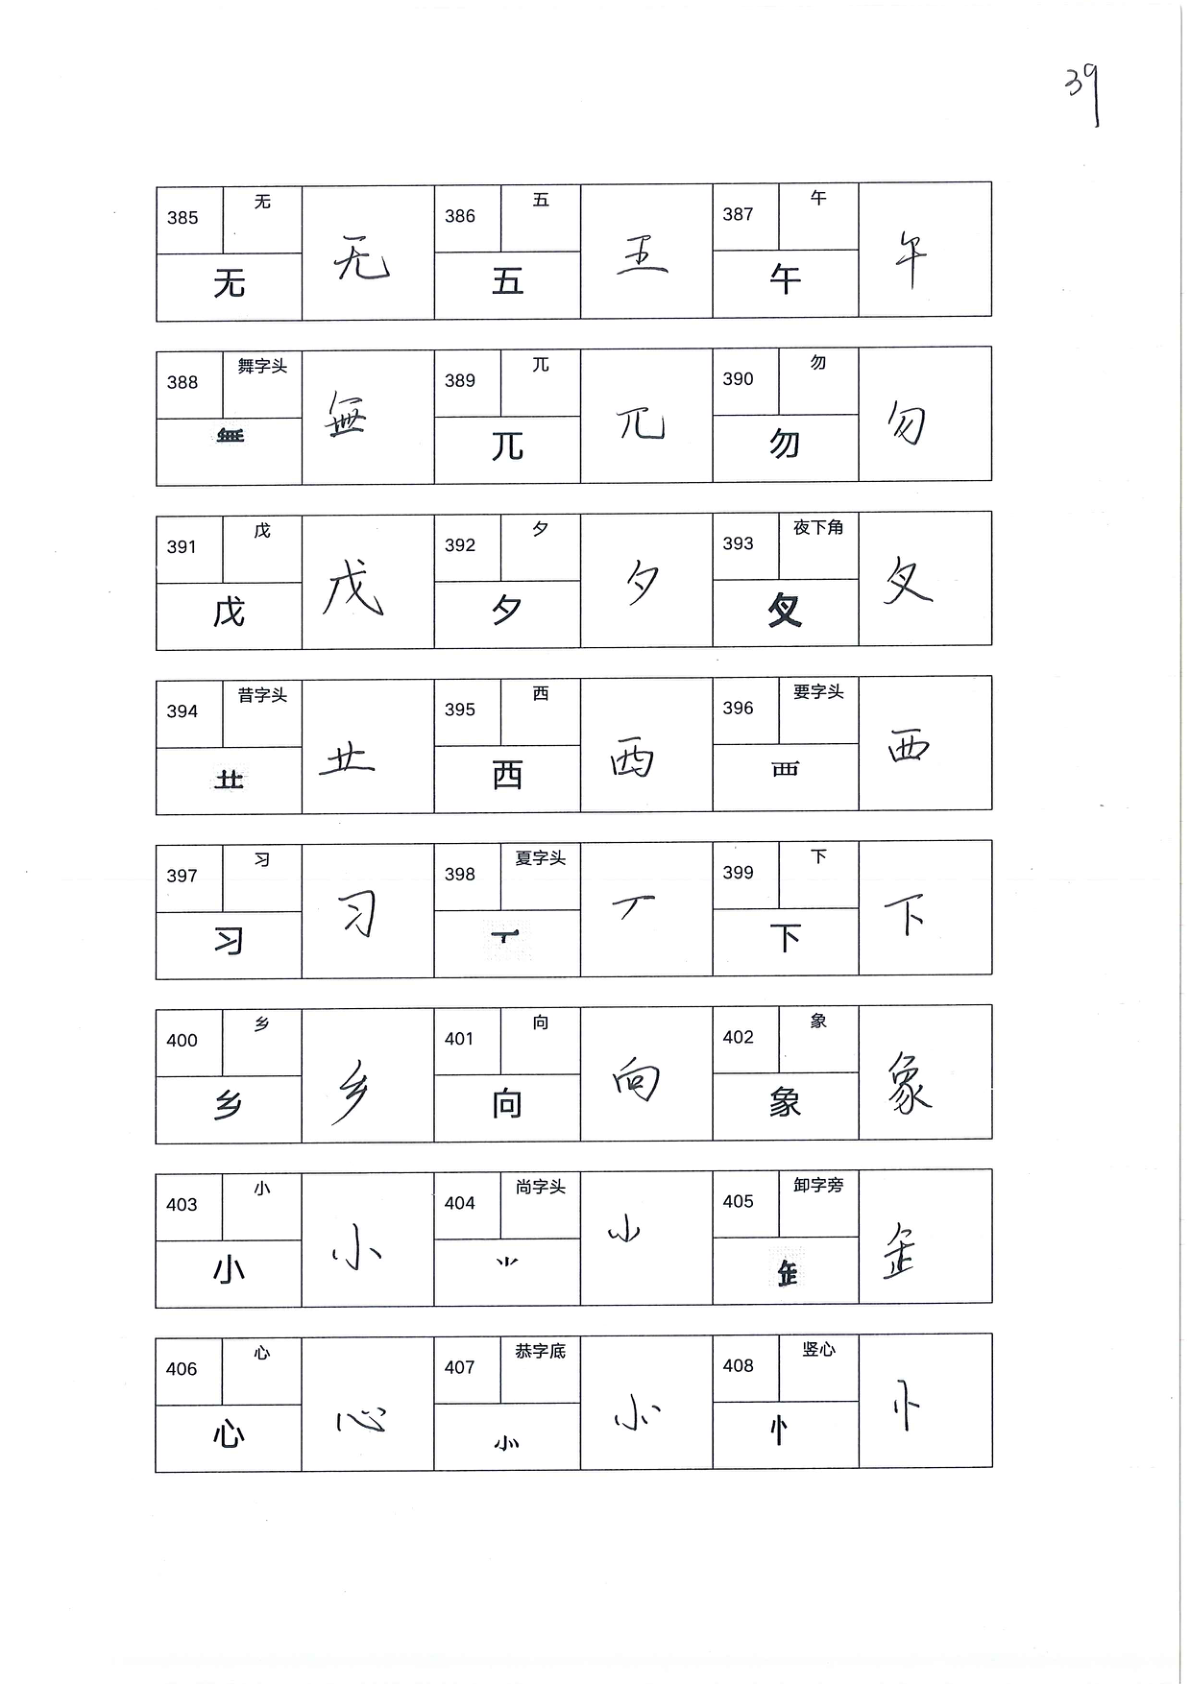 39
385 无 无 386 五 五 387 午 午
无 五 午
388 舞字头 389 兀 兀 390 勿 勿
兀 勿
391 戊 戊 392 夕 夕 393 夜下角
戊 夕
394 昔字头 龷 395 西 西 396 要字头 覀
龷 西 覀
397 习 习 398 夏字头 丆 399 下 下
习 丆 下
400 乡 乡 401 向 向 402 象 象
乡 向 象
403 小 小 404 尚字头 ⺌ 405 卸字旁
小 ⺌
406 心 心 407 恭字底 㣺 408 竖心 忄
心 㣺 忄